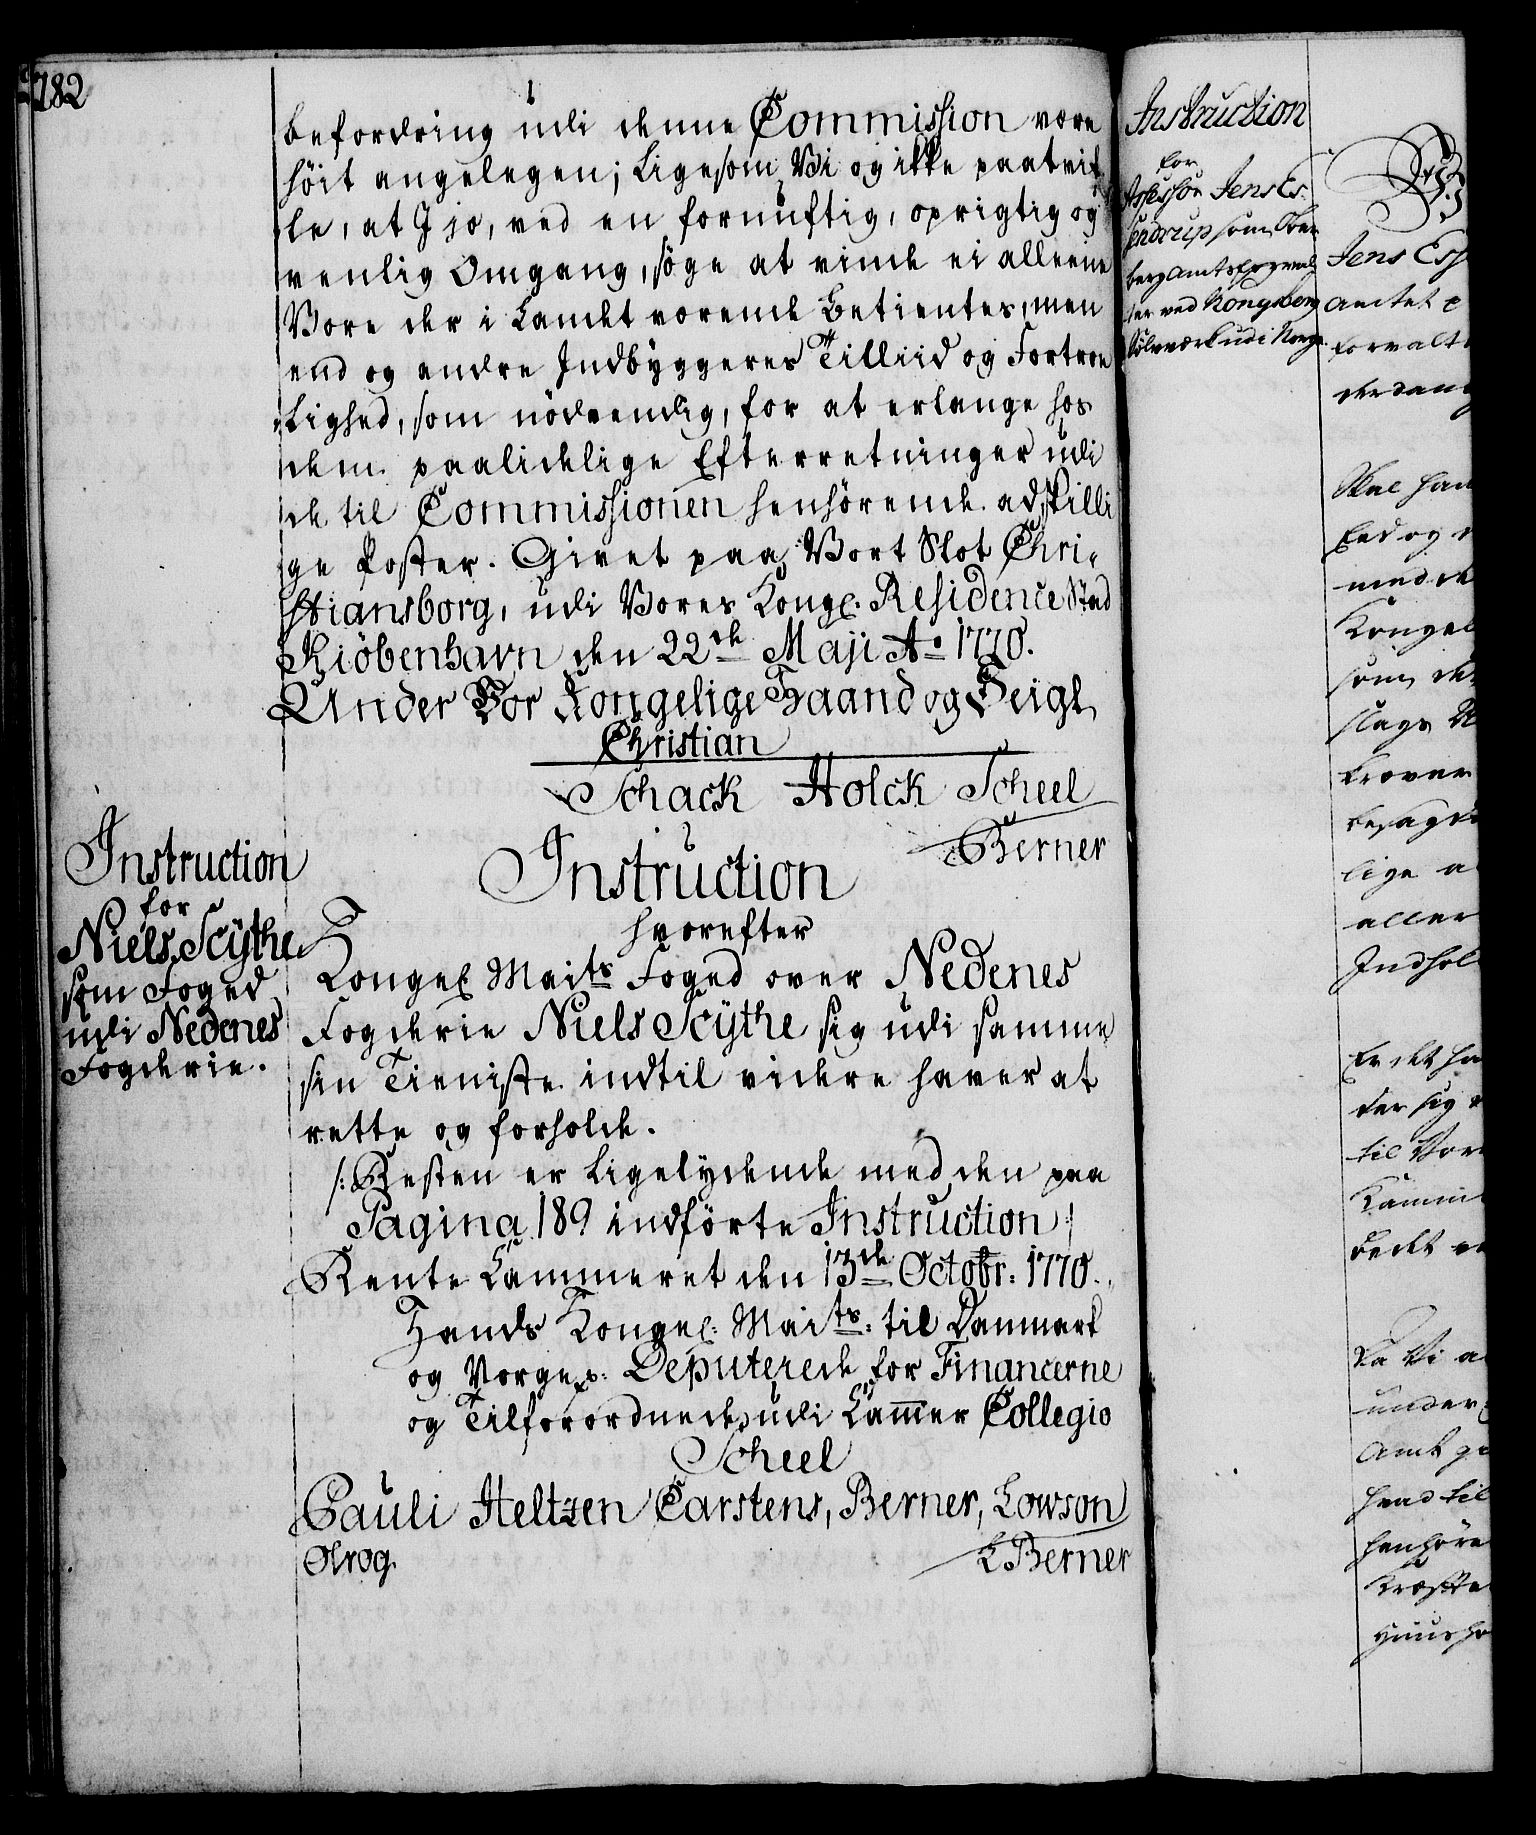 182
befordring udi denne Commission være
höit angelegen; Ligesom Vi og ikke paatvif¬
le, at I jo, ved en fornuftig, oprigtig og
venlig Omgang, söge at vinde ei alleene
Vore der i Landet værende Betientes, men
end og andre Indbyggeres Tilliid og Fortroe
Lighed, som nödvendig, for at erlange hos
dem paalidelige Efterretninger udi
de til Commissionen henhörende adskilli
ge Poster. Givet paa Vort Slot Chri¬
stiansborg, udi Vores Kongel. Residence Stad
Kiöbenhavn den 22de Maji Ao 1770.
Under Vor Kongelige Haand og Seigl
Christian
Schack Holck Scheel
Berner
Instruction
for
Niels Scÿthe
som Foged
udi Nedenes
Fogderie.
Instruction
hvorefter
Kongel Maits Foged over Nedenes
Fogderie Niels Scÿthe sig udi samme
sin Tieniste indtil videre haver at
rette og forholde.
/: Resten er Ligelydende med den paa
Pagina 189 indförte Instruction :/
Rente Cammeret den 13de Octobr: 1770.
Hands Kongel: Maits: til Danmark
og Norge p: Deputerede for Financerne
og Tilforordnede udi Cammer Collegio
Scheel
Pauli Heltzen Carstens, Berner, Lowson
Olrog
L Berner
Instruction
for
Assessor Jens Es¬
sendrup som Over
berg Amts forvalt
ter ved Kongsberg
Sölvværk udi Norge.
Jens Ess
Amtet
forvalt
Skal han
End og
med de
Kongel
som de
slags
Prøver
besagt
lige
aller
Indhol
Er det ha
der sig
til Vor
Kamm
Da Vi
under
Amt
hvad til
henhøre
Kræfte
Huusho